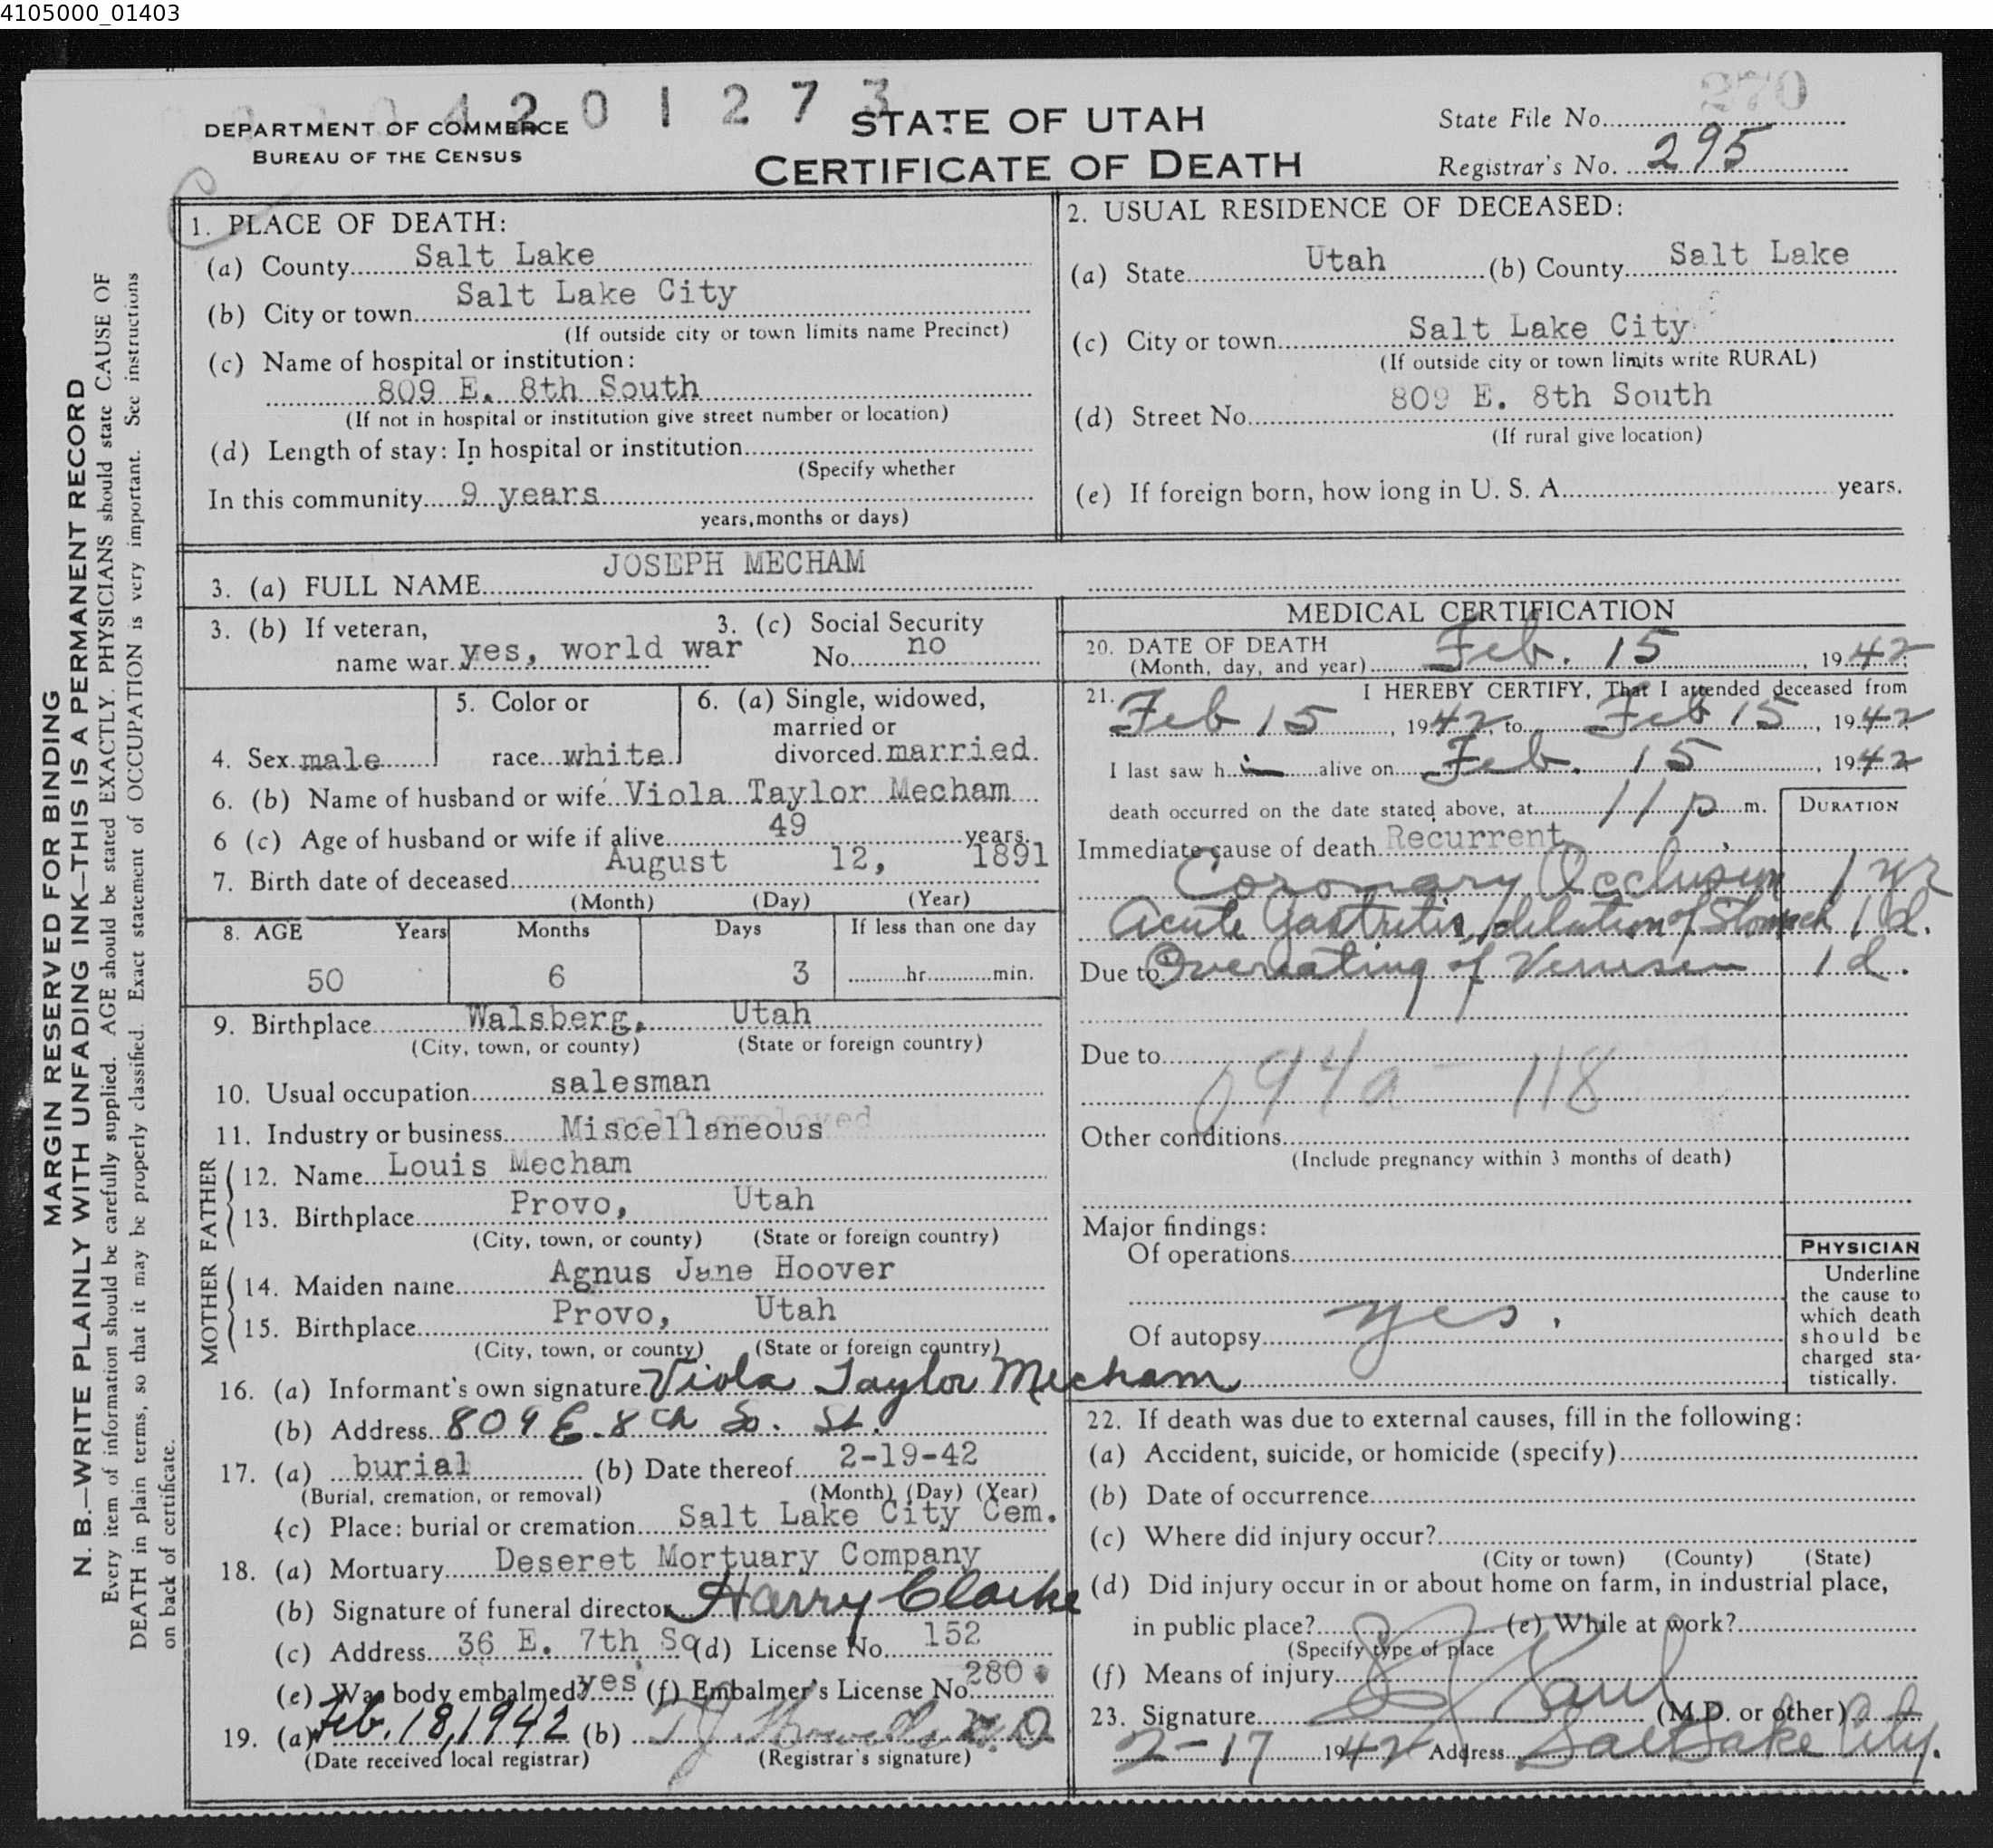 4105000_01403
4 2 0 1 2 7 3
270
DEPARTMENT OF COMMERCE
BUREAU OF THE CENSUS
STATE OF UTAH
CERTIFICATE OF DEATH
State File No.
Registrar's No. 295
MARGIN RESERVED FOR BINDING
N. B.—WRITE PLAINLY WITH UNFADING INK—THIS IS A PERMANENT RECORD
Every item of information should be carefully supplied. AGE should be stated EXACTLY. PHYSICIANS should state CAUSE OF
DEATH in plain terms, so that it may be properly classified. Exact statement of OCCUPATION is very important. See instructions
on back of certificate.
1. PLACE OF DEATH:
(a) County Salt Lake
(b) City or town Salt Lake City
(If outside city or town limits name Precinct)
(c) Name of hospital or institution:
809 E. 8th South
(If not in hospital or institution give street number or location)
(d) Length of stay: In hospital or institution
(Specify whether
In this community 9 years
years, months or days)
2. USUAL RESIDENCE OF DECEASED:
(a) State Utah (b) County Salt Lake
(c) City or town Salt Lake City
(If outside city or town limits write RURAL)
(d) Street No. 809 E. 8th South
(If rural give location)
(e) If foreign born, how long in U. S. A. years.
3. (a) FULL NAME JOSEPH MECHAM
3. (b) If veteran, name war yes, world war
3. (c) Social Security No. no
4. Sex male
5. Color or race white
6. (a) Single, widowed, married or divorced married
6. (b) Name of husband or wife Viola Taylor Mecham
6 (c) Age of husband or wife if alive 49 years.
7. Birth date of deceased August 12, 1891
(Month) (Day) (Year)
8. AGE Years Months Days If less than one day
50 6 3 hr. min.
9. Birthplace Walsberg, Utah
(City, town, or county) (State or foreign country)
10. Usual occupation salesman
11. Industry or business Miscellaneous
FATHER
12. Name Louis Mecham
13. Birthplace Provo, Utah
(City, town, or county) (State or foreign country)
MOTHER
14. Maiden name Agnus Jane Hoover
15. Birthplace Provo, Utah
(City, town, or county) (State or foreign country)
16. (a) Informant's own signature Viola Taylor Mecham
(b) Address 809 E. 8th So. St.
17. (a) burial (b) Date thereof 2-19-42
(Burial, cremation, or removal) (Month) (Day) (Year)
(c) Place: burial or cremation Salt Lake City Cem.
18. (a) Mortuary Deseret Mortuary Company
(b) Signature of funeral director Harry Clarke
(c) Address 36 E. 7th So (d) License No. 152
(e) Was body embalmed? yes (f) Embalmer's License No. 280
19. (a) Feb. 18, 1942 (b)
(Date received local registrar) (Registrar's signature)
MEDICAL CERTIFICATION
20. DATE OF DEATH
(Month, day, and year) Feb. 15, 1942
21. I HEREBY CERTIFY, That I attended deceased from
Feb 15, 1942, to Feb 15, 1942
I last saw h im alive on Feb. 15, 1942
death occurred on the date stated above, at 11 p m.
DURATION
Immediate cause of death Recurrent
Coronary Occlusion 1 yr
Acute Gastritis, dilation of Stomach 1 d.
Due to Overeating of Venison 1 d.
Due to
94a - 118
Other conditions
(Include pregnancy within 3 months of death)
Major findings:
Of operations
Of autopsy yes.
PHYSICIAN
Underline
the cause to
which death
should be
charged sta-
tistically.
22. If death was due to external causes, fill in the following:
(a) Accident, suicide, or homicide (specify)
(b) Date of occurrence
(c) Where did injury occur?
(City or town) (County) (State)
(d) Did injury occur in or about home on farm, in industrial place,
in public place? (e) While at work?
(Specify type of place
(f) Means of injury
23. Signature (M.D. or other)
2-17 1942 Address Salt Lake City.